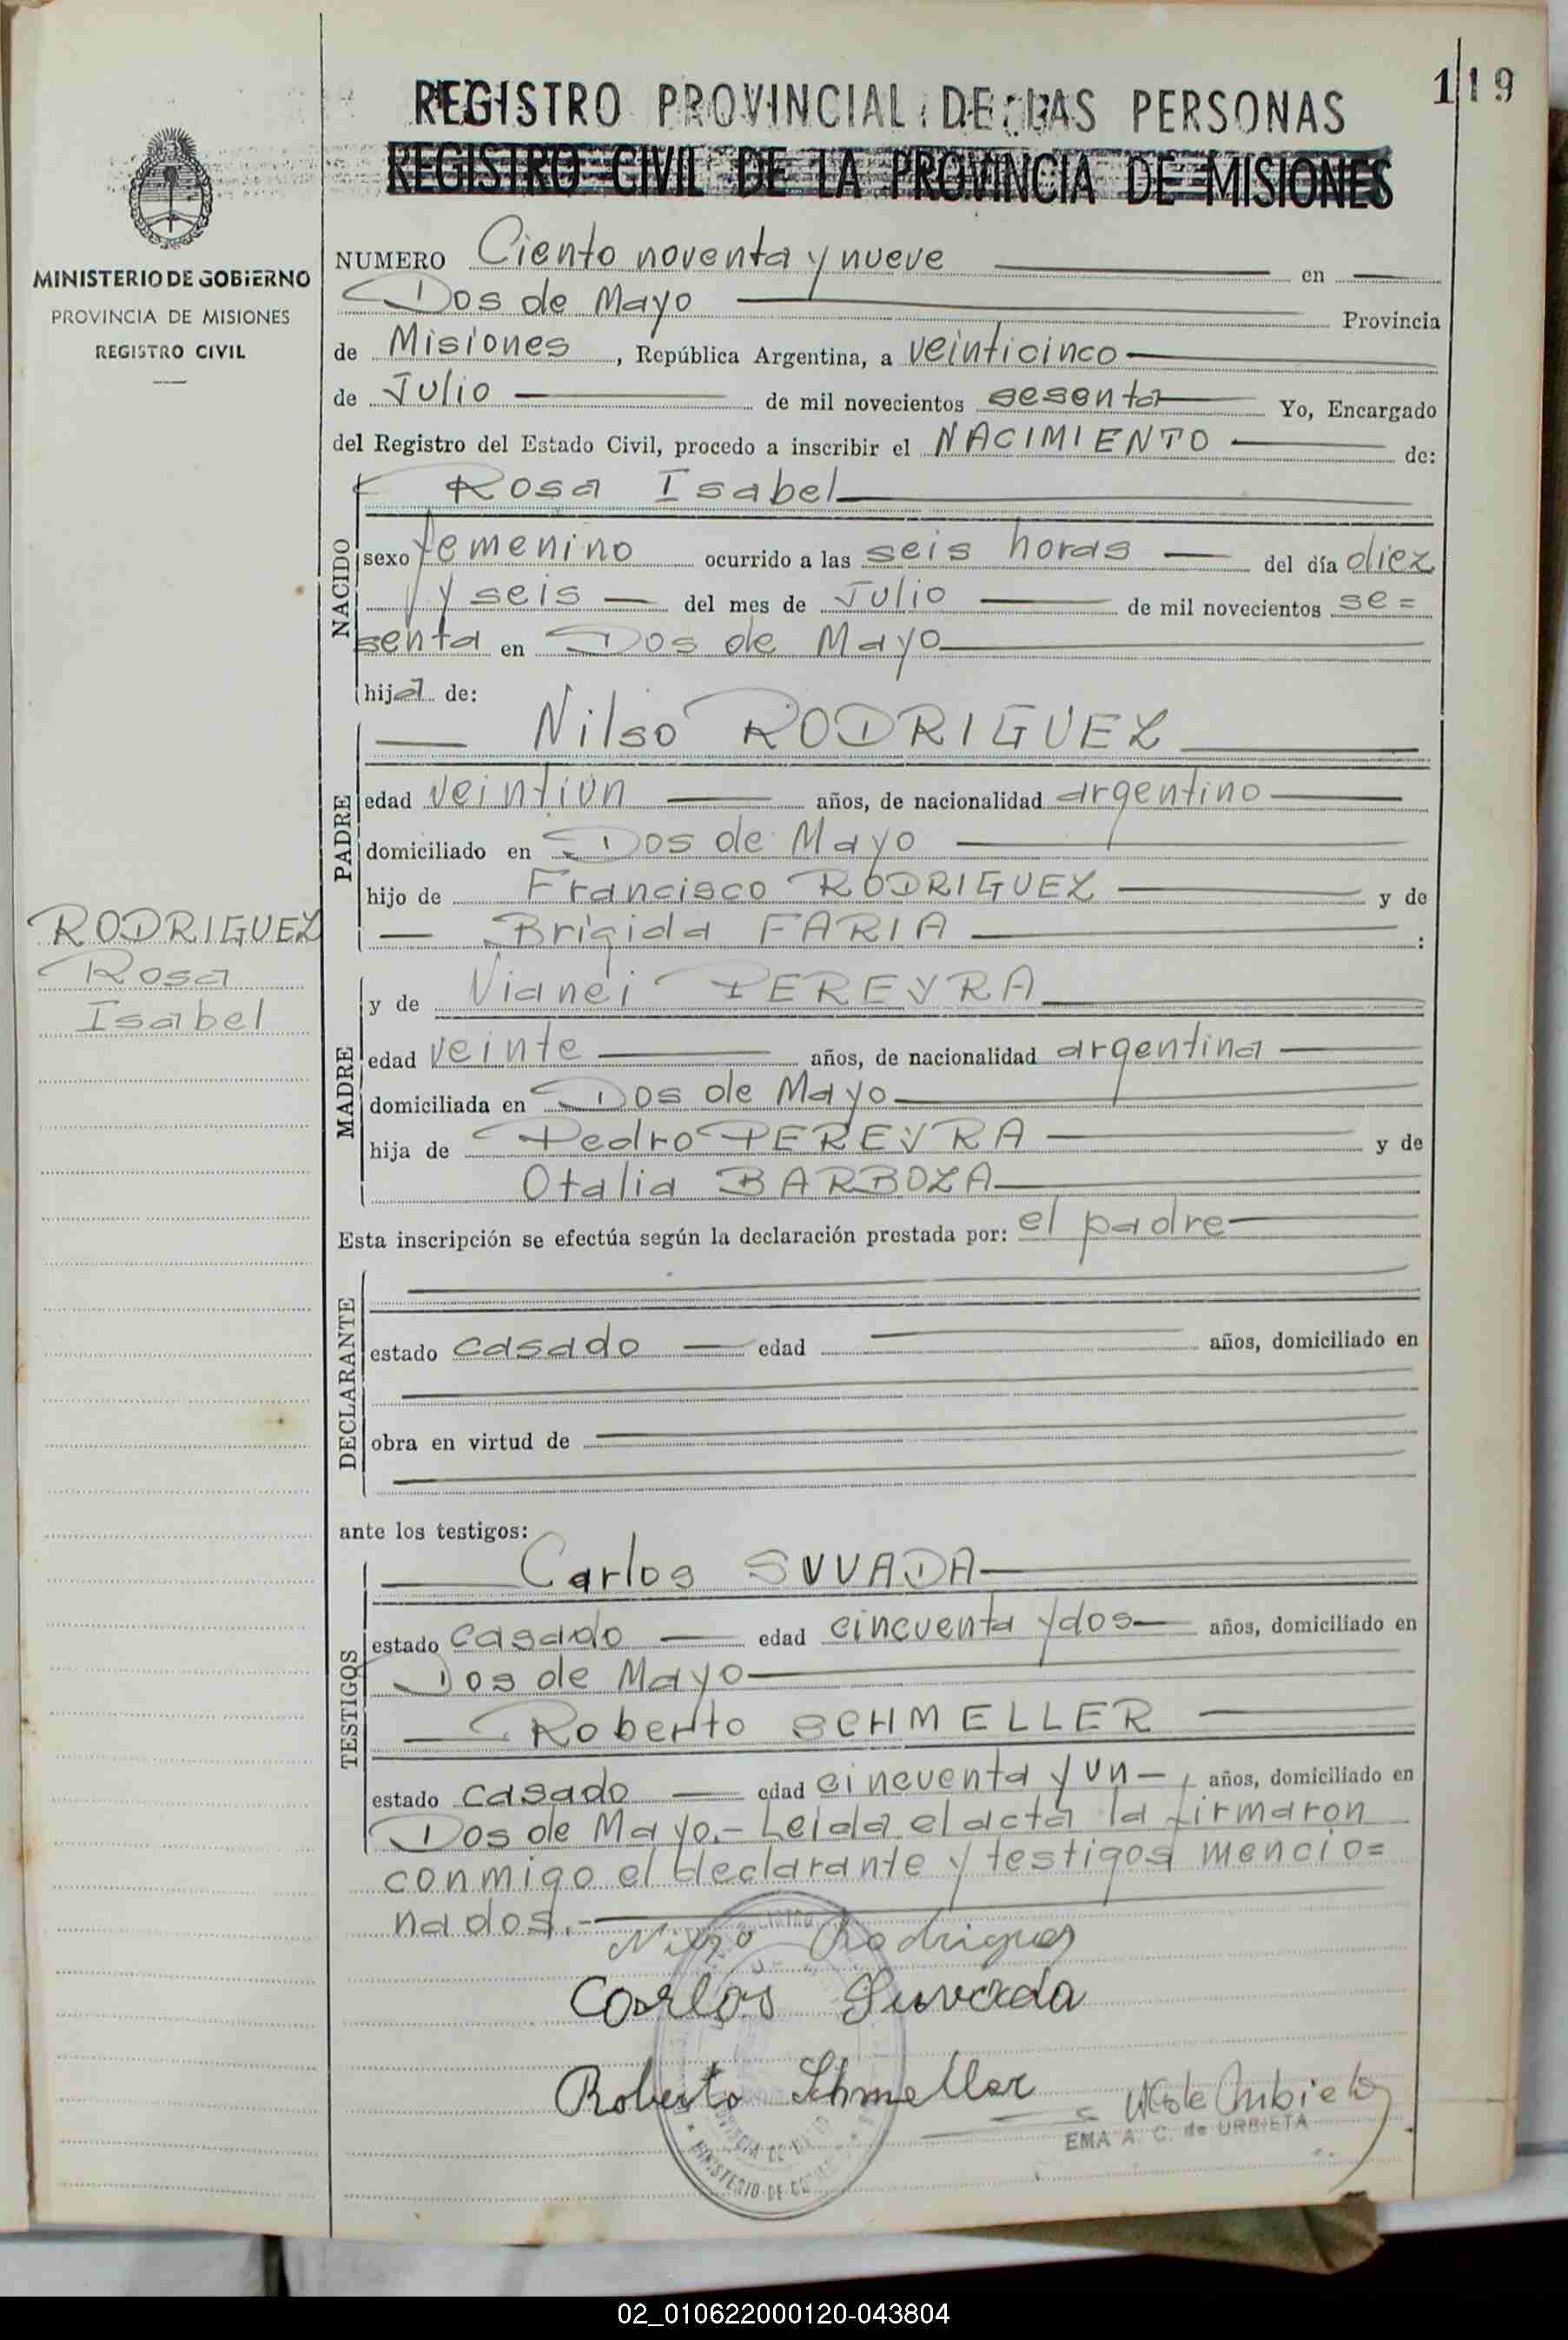 119
REGISTRO PROVINCIAL DE LAS PERSONAS
REGISTRO CIVIL DE LA PROVINCIA DE MISIONES
MINISTERIO DE GOBIERNO
PROVINCIA DE MISIONES
REGISTRO CIVIL
NUMERO Ciento noventa y nueve en
Dos de Mayo Provincia
de Misiones, República Argentina, a veinticinco
de Julio de mil novecientos sesenta Yo, Encargado
del Registro del Estado Civil, procedo a inscribir el NACIMIENTO de:
Rosa Isabel
NACIDO
sexo femenino ocurrido a las seis horas del día diez
y seis del mes de Julio de mil novecientos se=
senta en Dos de Mayo
hija de:
Nilso RODRIGUEZ
PADRE
edad veintiun años, de nacionalidad argentino
domiciliado en Dos de Mayo
hijo de Francisco RODRIGUEZ y de
Brígida FARIA :
RODRIGUEZ
Rosa
Isabel
y de Vianei PEREYRA
MADRE
edad veinte años, de nacionalidad argentina
domiciliada en Dos de Mayo
hija de Pedro PEREYRA y de
Otalia BARBOZA
Esta inscripción se efectúa según la declaración prestada por: el padre
DECLARANTE
estado casado edad años, domiciliado en
obra en virtud de
ante los testigos:
Carlos SUVADA
TESTIGOS
estado casado edad cincuenta y dos años, domiciliado en
Dos de Mayo
Roberto SCHMELLER
estado casado edad cincuenta y un-, años, domiciliado en
Dos de Mayo.- Leida el acta la firmaron
conmigo el declarante y testigos mencio=
nados.-
Nilso Rodriguez
Carlos Suvada
Roberto Schmeller
EMA A. C. de URBIETA
02_010622000120-043804